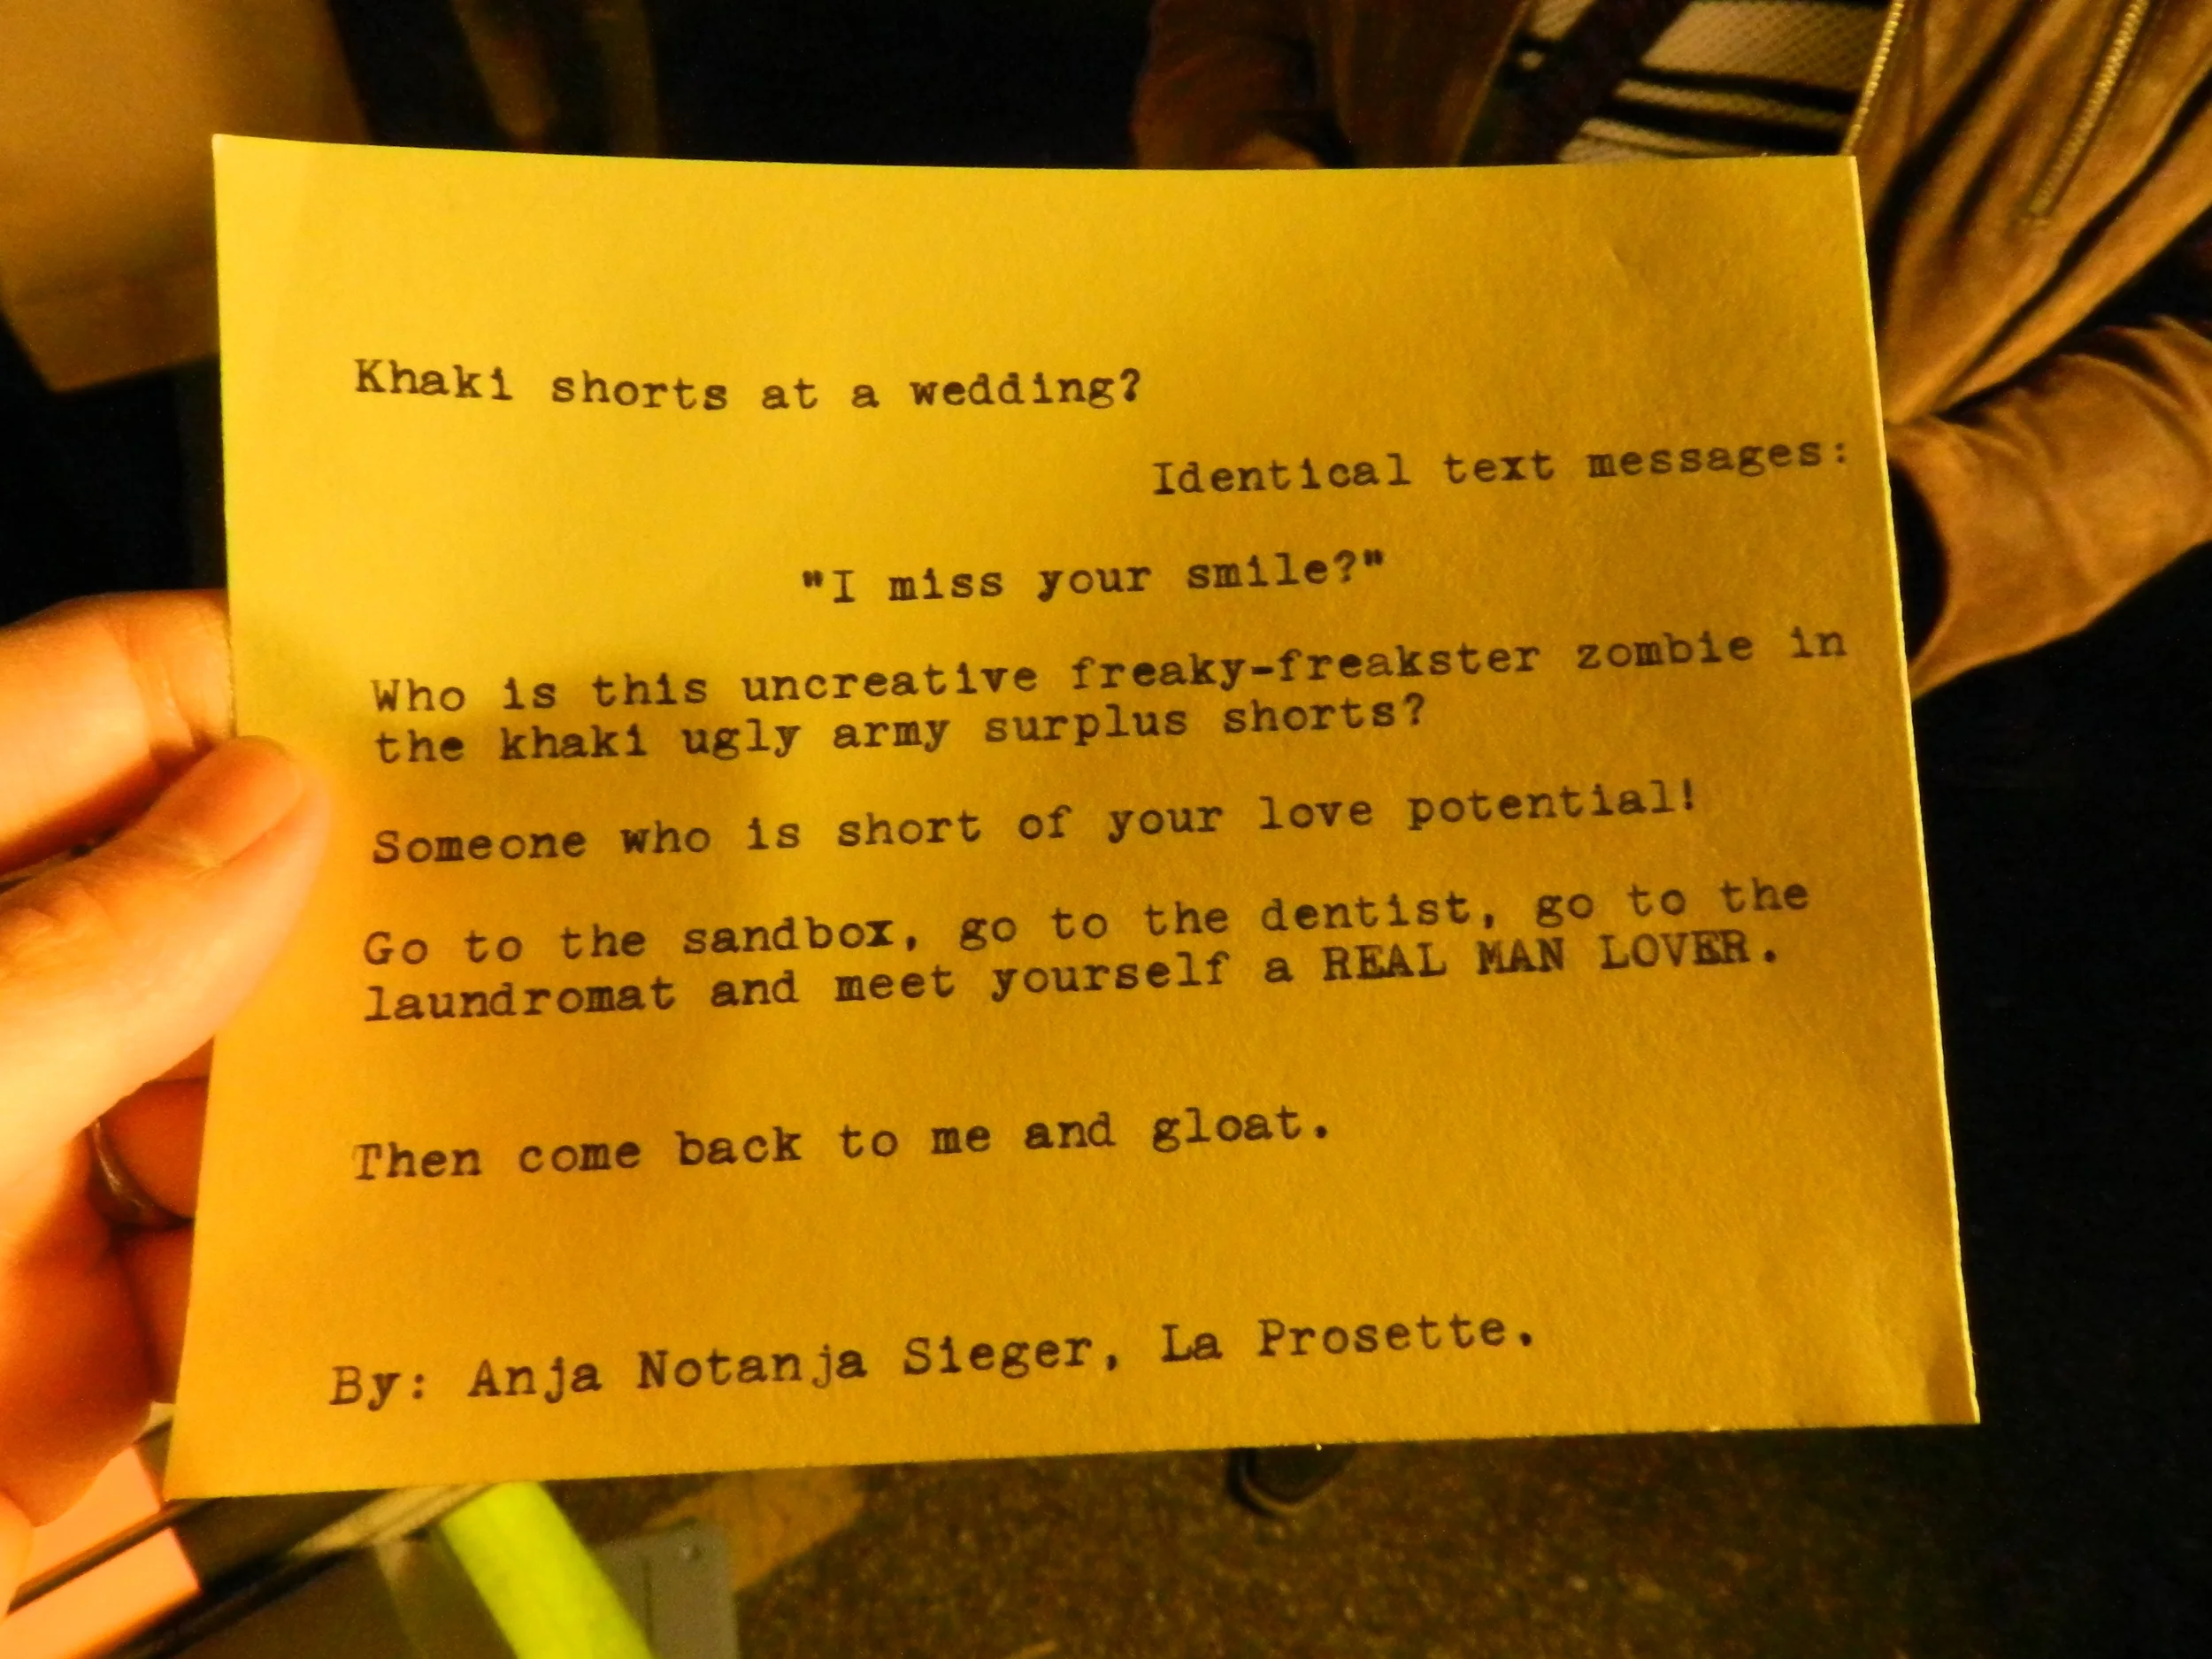 Khaki shorts at a wedding?
Identical text messages:
"I miss your smile?"
Who is this uncreative freaky-freakster zombie in
the khaki ugly army surplus shorts?
Someone who is short of your love potential!
Go to the sandbox, go to the dentist, go to the
laundromat and meet yourself a REAL MAN LOVER.
Then come back to me and gloat.
By: Anja Notanja Sieger, La Prosette.